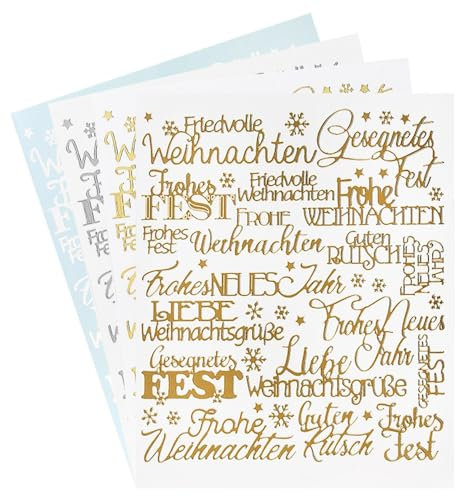 Friedvolle
Weihnachten
Gesegnetes
Fest
Frohes
FEST
Friedvolle
Weihnachten
Frohe
FROHE WEIHNACHTEN
Frohes
Fest
Weihnachten
Guten
RUTSCH
FROHES
NEUES
JAHR
Frohes NEUES Jahr
LIEBE
Weihnachtsgrüße
Frohes Neues
Jahr
Gesegnetes
FEST
Liebe
Weihnachtsgrüße
GESEGNETES
FEST
Frohe
Weihnachten
Guten
Rutsch
Frohes
Fest